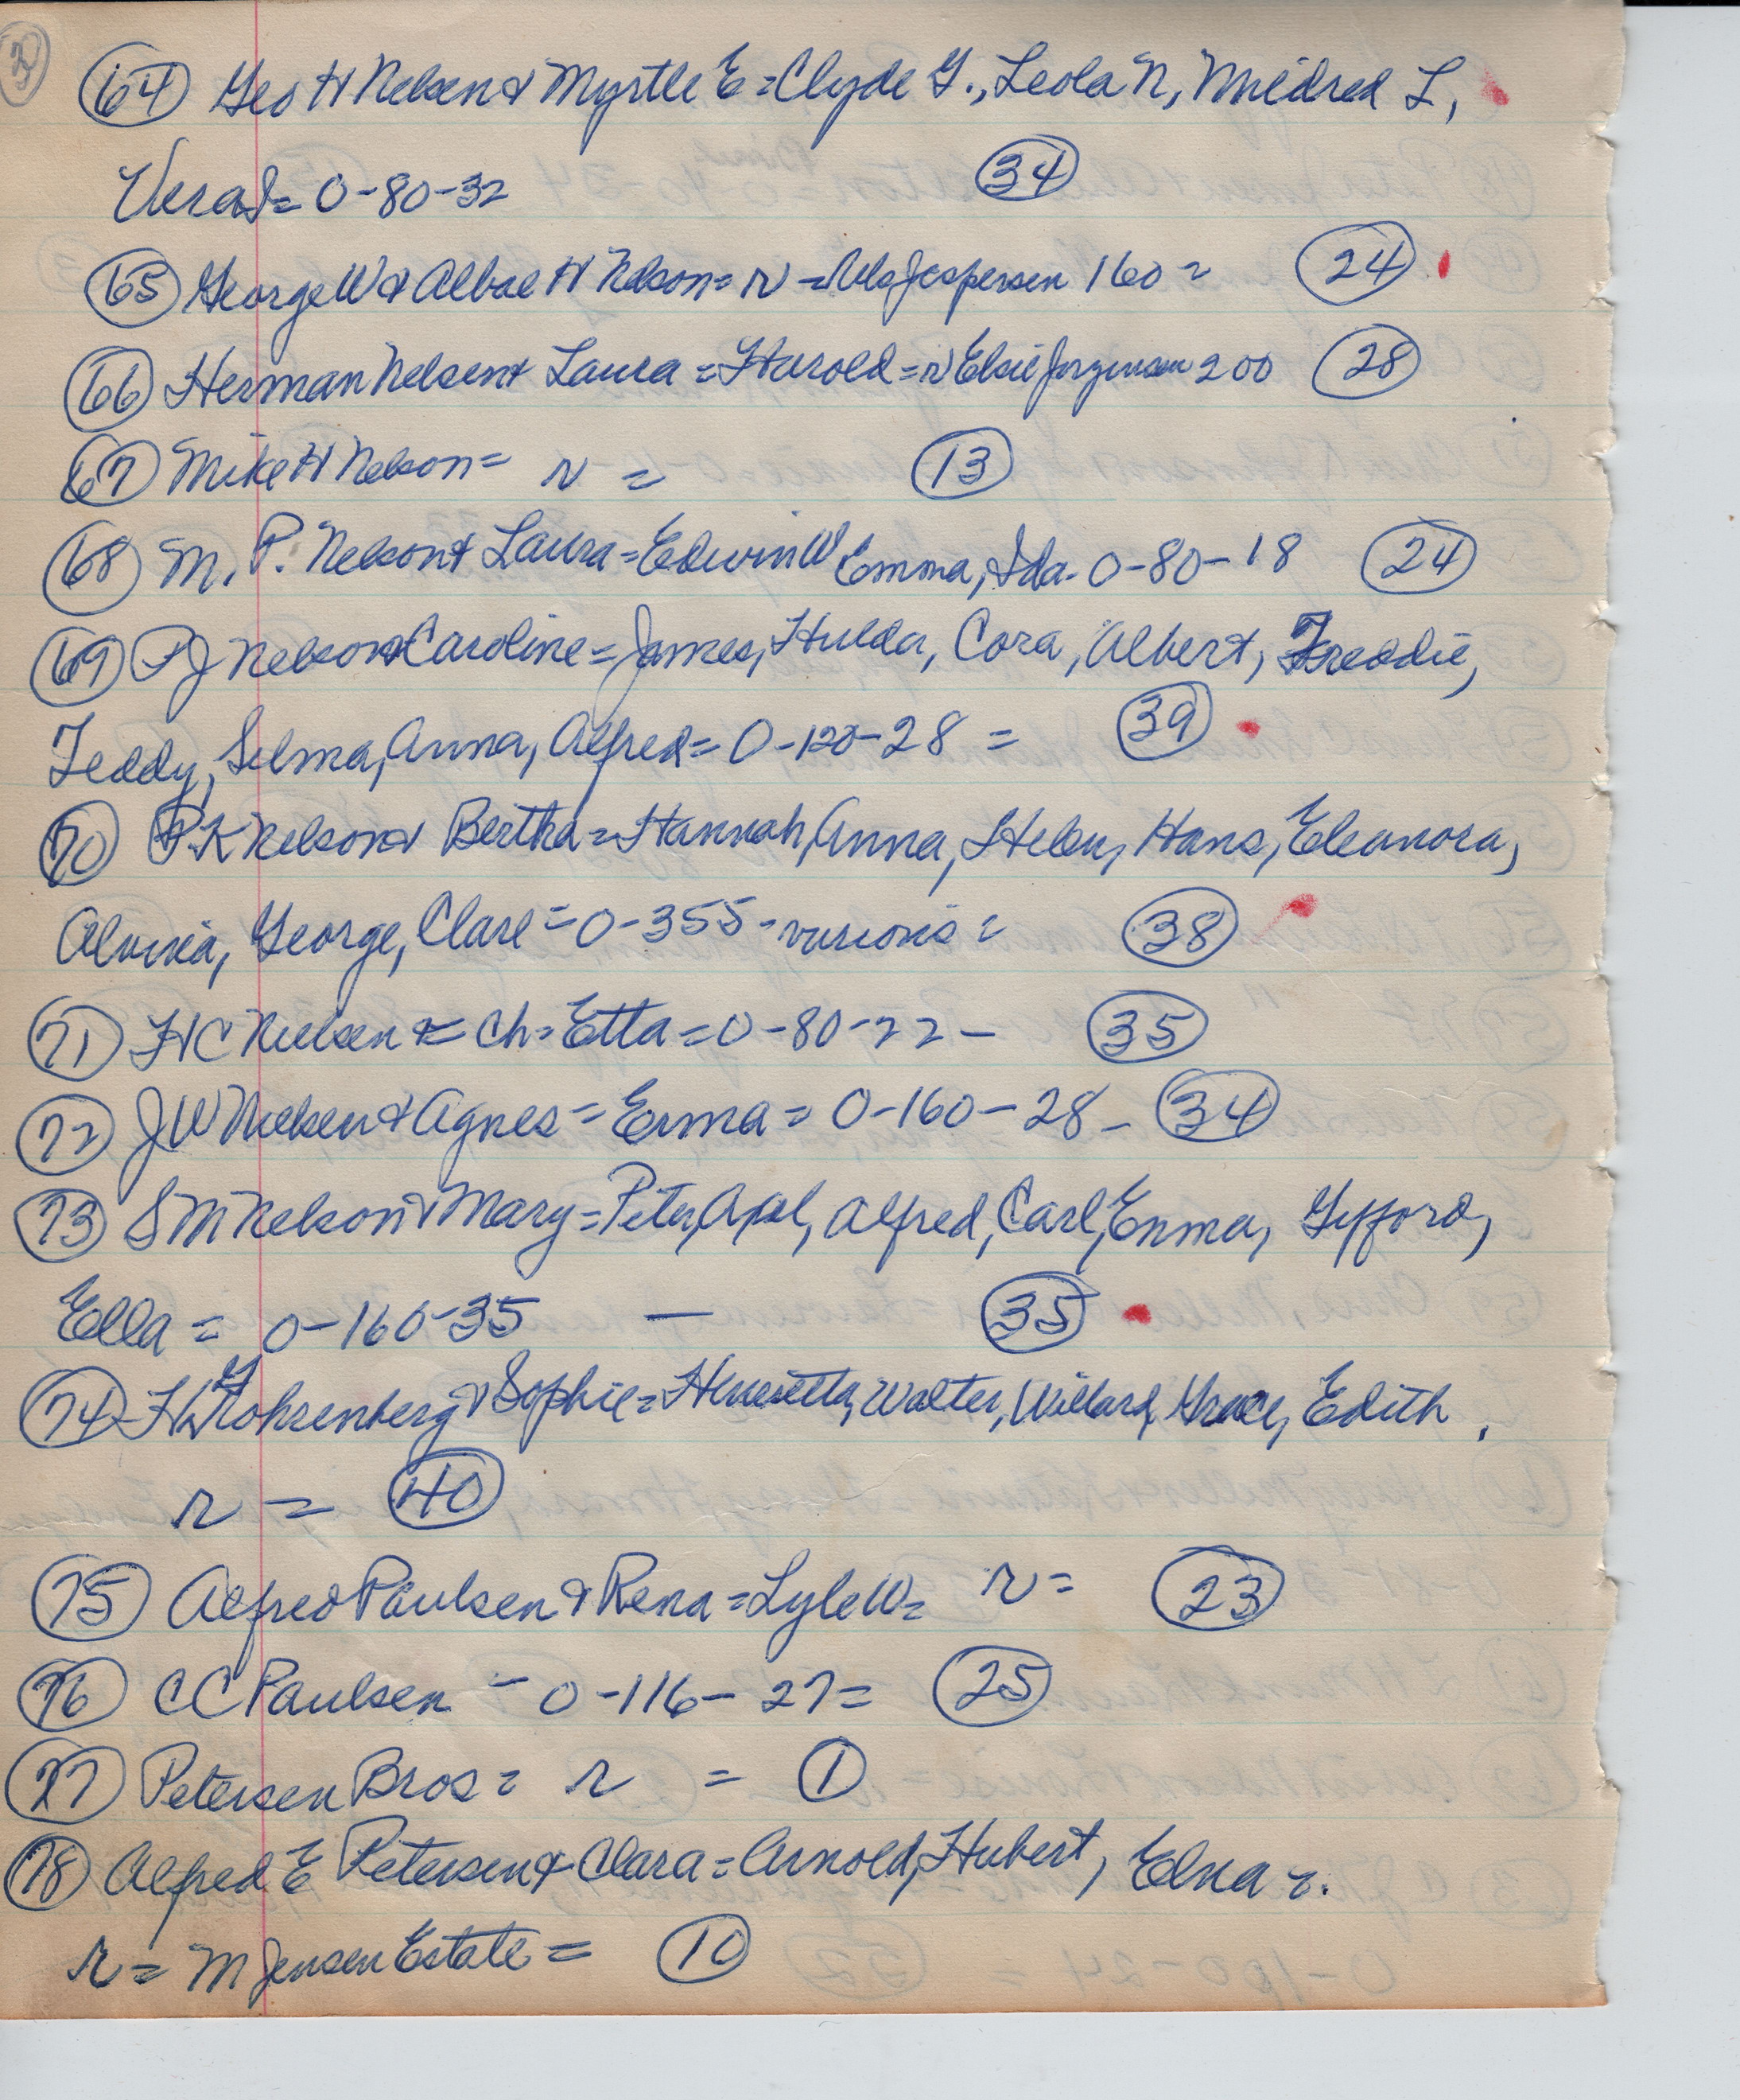 30
64 Geo H Nelsen & Myrtle E = Clyde G., Leola N, Mildred L,
Vera = 0-80-32 34
65 George W & H Nelson = r = Jespersen 160 = 24
66 Herman Nelsen & Laura = Harold = r Elsie Jorgensen 200 28
67 Mike H Nelson = r = 13
68 M. P. Nelson & Laura = Edwin W Emma, Ida - 0-80-18 24
69 P J Nelson & Caroline = James, Hulda, Cora, Albert, Freddie,
Teddy, Selma, Anna, Alfred = 0-120-28 = 39
70 P.K Nelson & Bertha = Hannah, Anna, Helen, Hans, Eleanora,
Alvina, George, Clare = 0-355-various = 38
71 H C Nielsen = ch = Etta = 0-80-22 - 35
72 J W Nielsen & Agnes = Erma = 0-160-28 - 34
73 S M Nelson & Mary = Peter, Alfred, Carl, Emma, Gifford,
Ella = 0-160-35 - 35
74 & Sophie = Henrietta, Walter, Willard, Grace, Edith.
r = 40
75 Alfred Paulsen & Rena = Lyle W = r = 23
76 C C Paulsen - 0-116-27 = 25
77 Petersen Bros = r = 1
78 Alfred E Petersen & Clara = Arnold, Hubert, Elna =.
r = M Jensen Estate = 10